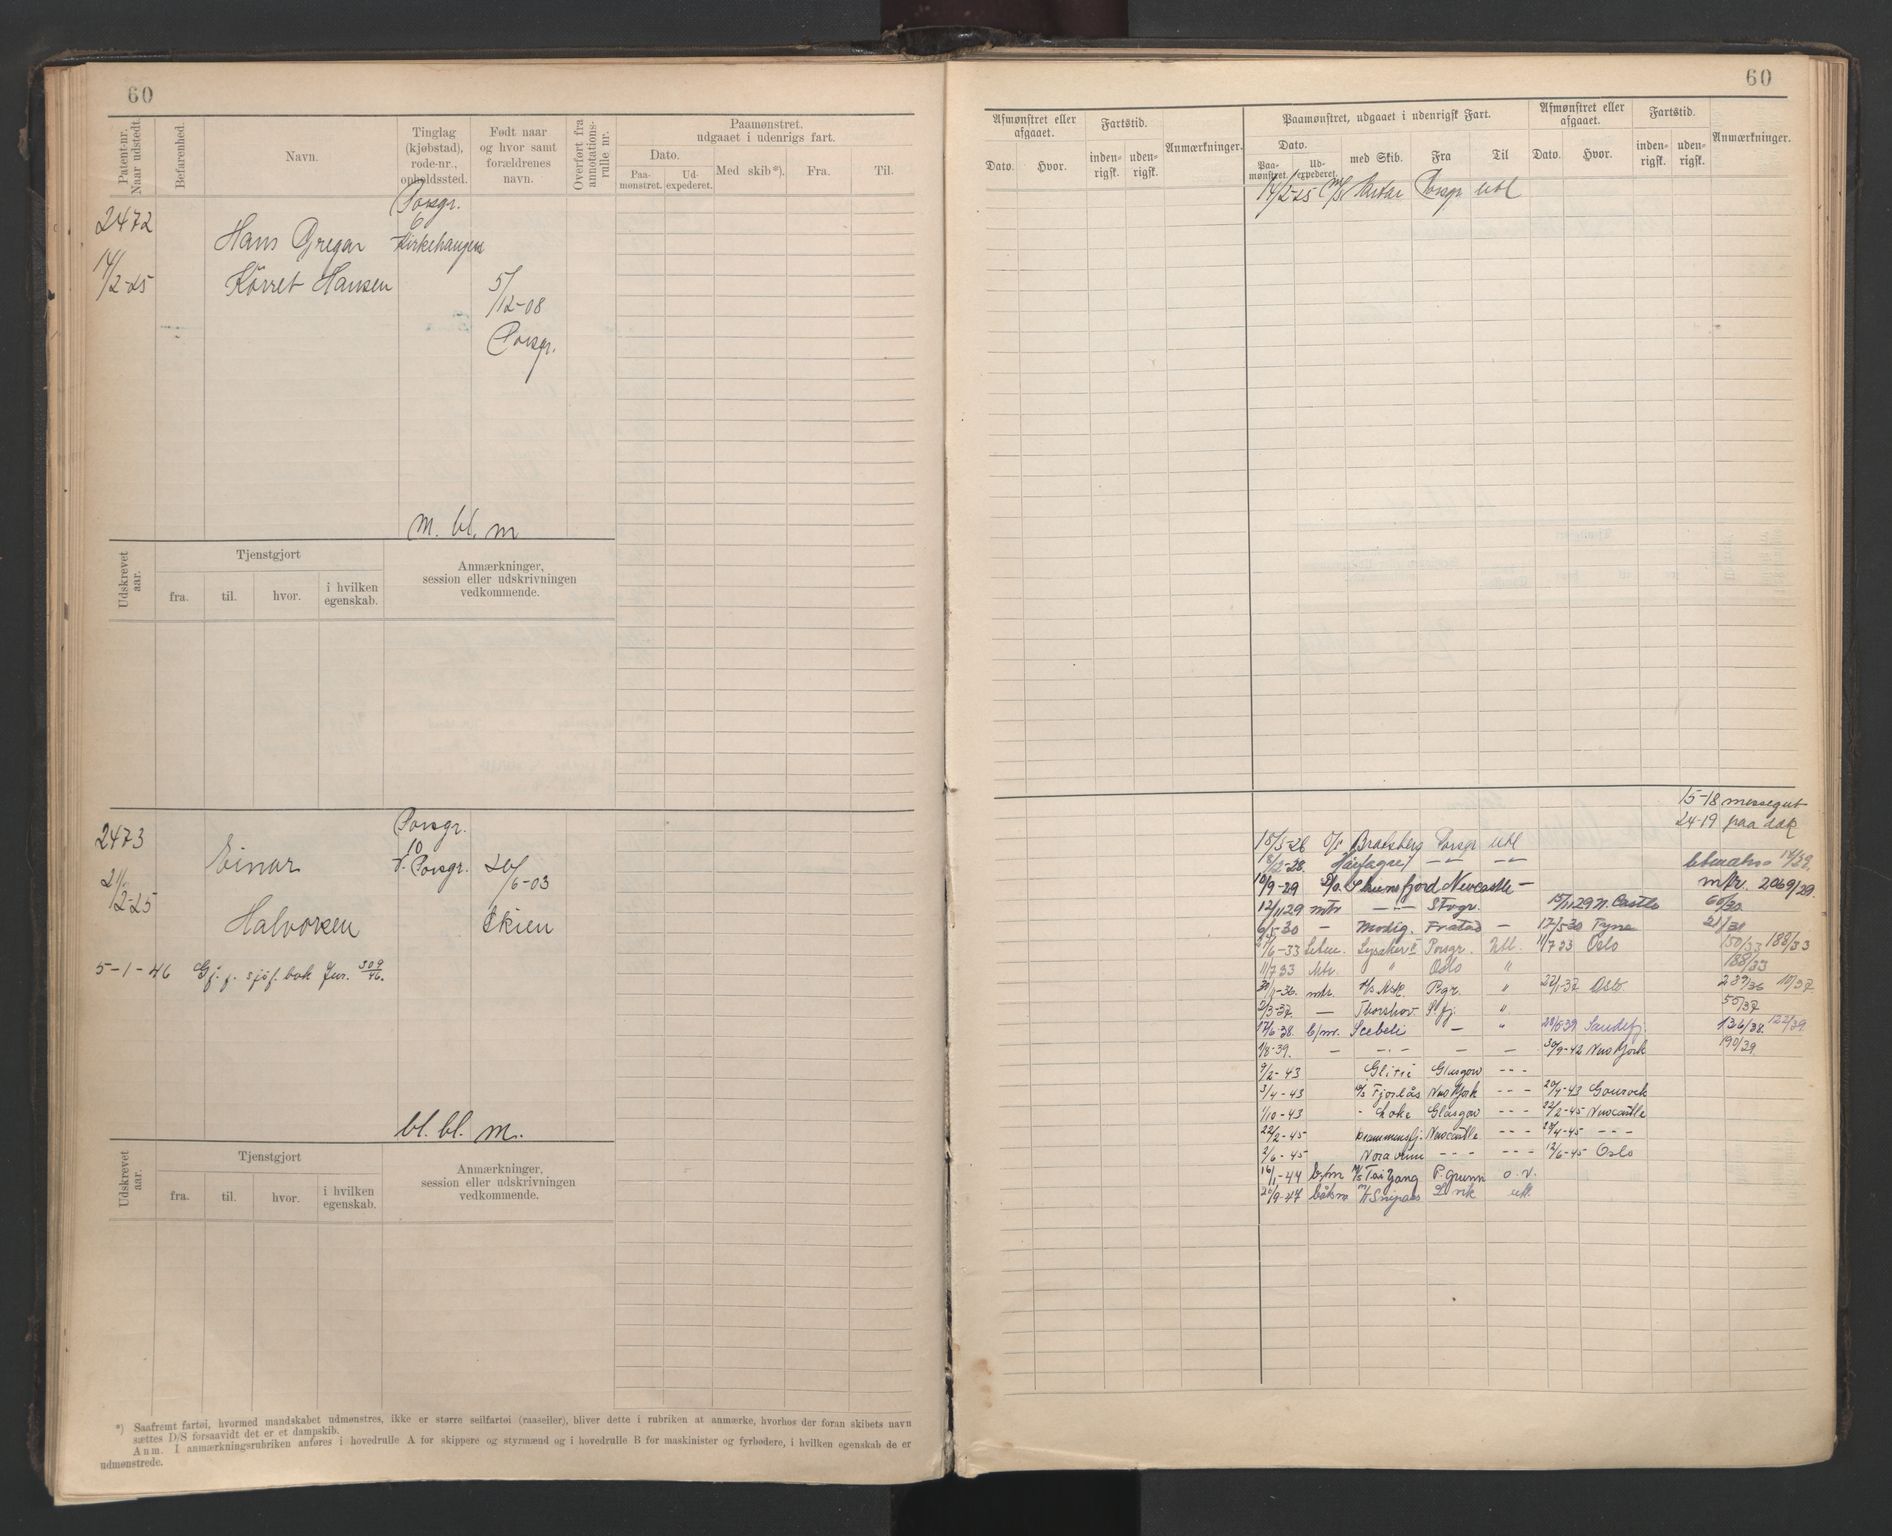 60
Patent-nr. Naar udstedt.
Befarenhed.
Navn.
Tinglag (kjøbstad), rode-nr., opholdssted.
Født naar og hvor samt forældrenes navn.
Overført fra annotationsrulle nr.
Paamønstret, udgaaet i udenrigs fart.
Dato.
Paamønstret.
Udexpederet.
Med skib*).
Fra.
Til.
2472
14/2-25
Hans Gregar
Kørret Hansen
Porsgr.
6
Kirkehaugen
5/12-08
Porsgr.
m. bl. m
Udskrevet aar.
Tjenstgjort
fra.
til.
hvor.
i hvilken egenskab.
Anmærkninger, session eller udskrivningen vedkommende.
2473
21/2-25
Einar
Halvorsen
Porsgr.
10
V. Porsgr.
20/6-03
Skien
5-1-46 Gj. f. sjøf. bok Jnr. 309/46.
bl. bl. m.
Udskrevet aar.
Tjenstgjort
fra.
til.
hvor.
i hvilken egenskab.
Anmærkninger, session eller udskrivningen vedkommende.
*) Saafremt fartøi, hvormed mandskabet udmønstres, ikke er større seilfartøi (raaseiler), bliver dette i rubriken at anmærke, hvorhos der foran skibets navn
sættes D/S forsaavidt det er et dampskib.
Anm. I anmærkningsrubriken anføres i hovedrulle A for skippere og styrmænd og i hovedrulle B for maskinister og fyrbødere, i hvilken egenskab de er
udmønstrede.
60
Afmønstret eller afgaaet.
Dato.
Hvor.
Fartstid.
indenrigsk.
udenrigsk.
Anmærkninger.
Paamønstret, udgaaet i udenrigsk Fart.
Dato.
Paamønstret.
Udexpederet.
med Skib.
Fra
Til
Afmønstret eller afgaaet.
Dato.
Hvor.
Fartstid.
indenrigsk.
udenrigsk.
Anmærkninger.
14/2-25 M/S Porsgr Utl
15-18 messegut
24-19 paa dæk
18/3-26 Bratsberg Porsgr Utl
18/2-28. Haarfagre 14/29.
10/9-29 Newcastle - mtr. 2069/29
12/11 29 mtr - Stvgr. 15/11 29 N. Castle 60/30
6/5-30 - Modig. - 17/5-30 Tyne 21/30
6-33 Lysaker V Porsgr. Utl. 11/7 33 Oslo 150/33 188/33
11/7 33 Mtr. " Oslo " 188/33
-36. mtr. D/S Ask. Pgr. " 22/1-37 Oslo. 239/36 10/37.
2/3-37. - Thorshov S.fj. " 55/37
17/6-38. b/m. Scebeli - " 20/5-39 Sandefj. 136/38. 122/39.
1/8-39. - -.- - - 30/9-42 New York 190/39.
9/2-43 Glitre Glasgow ---
3/4-43 Fjordås New York --- 20/4-43 Gourock
1/10-43 Loke Glasgow --- 22/2-45 Newcastle
22/2-45 Drammensfj. Newcastle --- 20/4-45 ---
2/6-45 Nora --- --- 12/6-45 Oslo
16/1-47 b/m M/S Tai Yang P. grunn o. v.
20/9-47 båtsm M/T Snipaas L.vik utl.